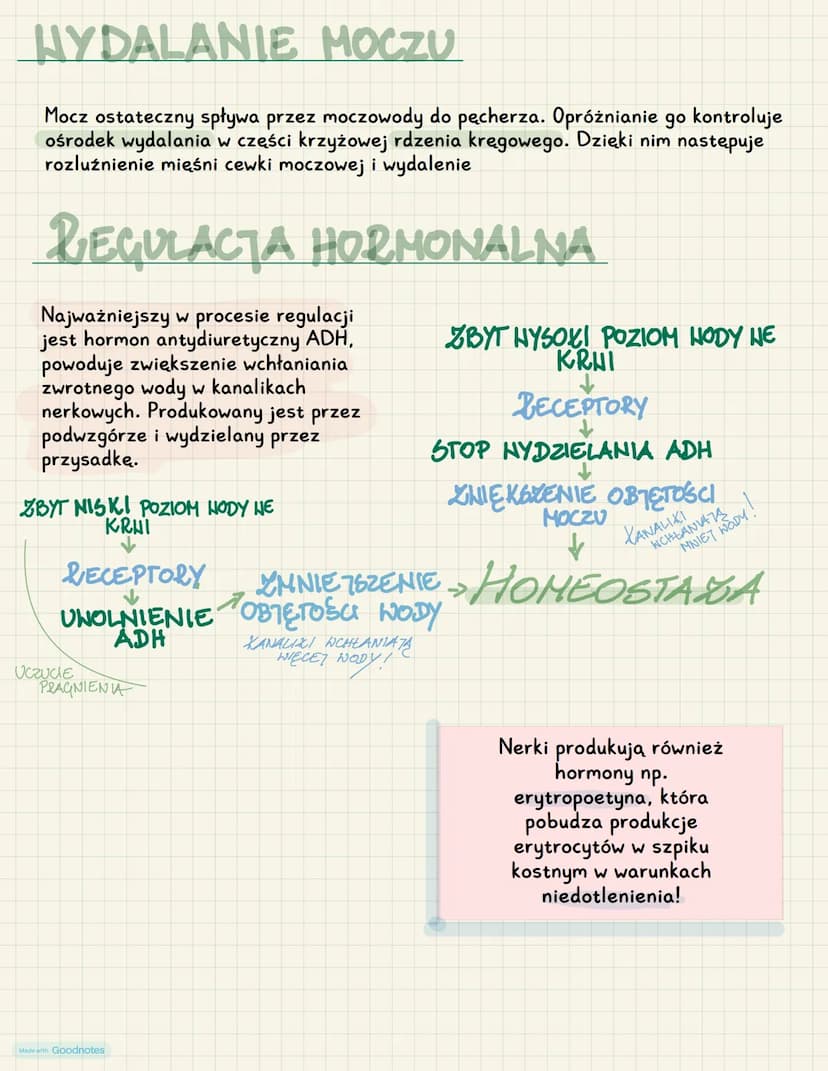 WYDALANIE MOCZU
Mocz ostateczny spływa przez moczowody do pęcherza. Opróżnianie go kontroluje
ośrodek wydalania w części krzyżowej rdzenia kręgowego. Dzięki nim następuje
rozluźnienie mięśni cewki moczowej i wydalenie
REGULACJA HORMONALNA
Najważniejszy w procesie regulacji
jest hormon antydiuretyczny ADH,
powoduje zwiększenie wchłaniania
zwrotnego wody w kanalikach
nerkowych. Produkowany jest przez
podwzgórze i wydzielany przez
przysadkę.
ZBYT NISKI POZIOM WODY WE
KRWI
↓
RECEPTORY
↓
UWOLNIENIE
ADH
UCZUCIE
PRAGNIENIA
→ ZMNIEJSZENIE
OBJĘTOŚCI WODY
KANALIKI WCHŁANIAJĄ
WIĘCEJ WODY!
ZBYT WYSOKI POZIOM WODY WE
KRWI
↓
RECEPTORY
↓
STOP WYDZIELANIA ADH
↓
ZWIĘKSZENIE OBJĘTOŚCI
MOCZU
KANALIKI
WCHŁANIAJĄ
MNIEJ WODY!
↓
→ HOMEOSTAZA
Nerki produkują również
hormony np.
erytropoetyna, która
pobudza produkcje
erytrocytów w szpiku
kostnym w warunkach
niedotlenienia!
Made with Goodnotes